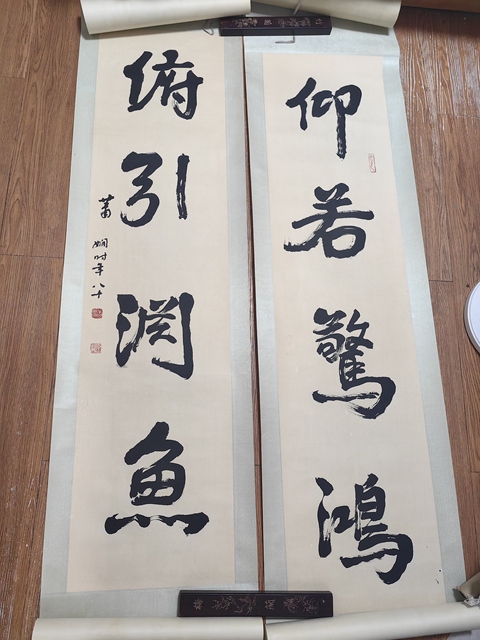 仰若驚鴻
俯引渊魚
蕭嫻时年八十